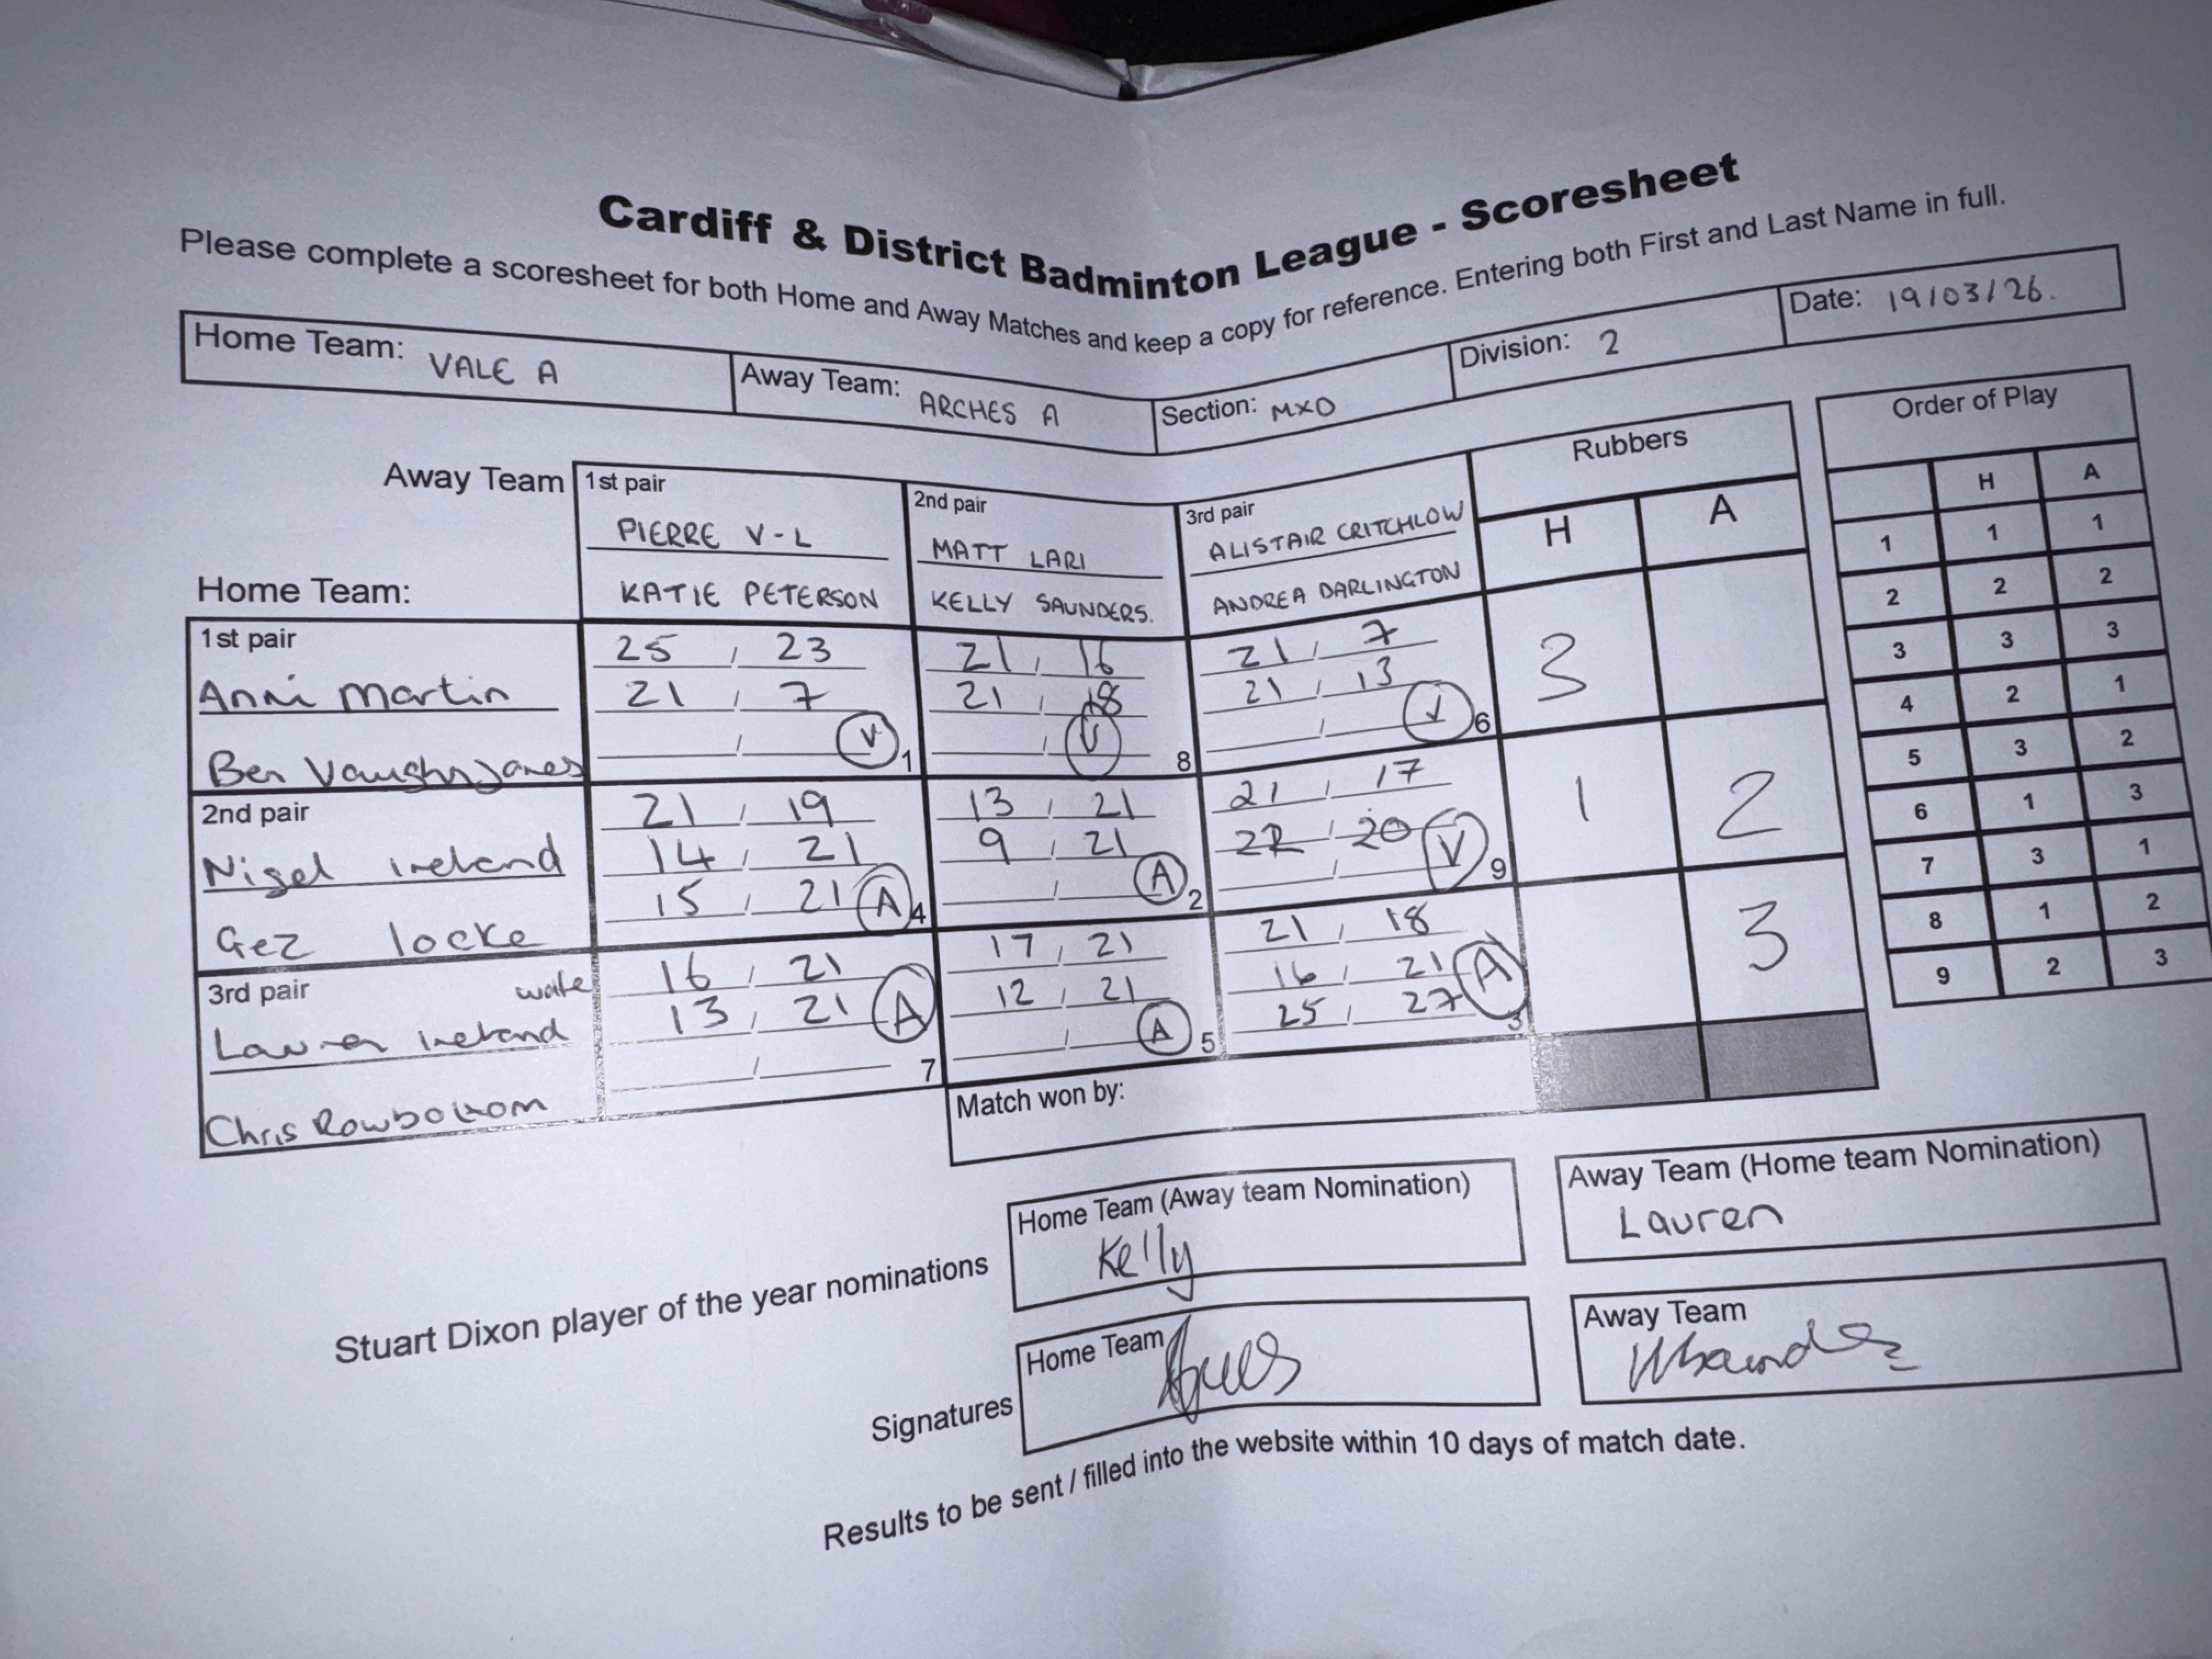 Cardiff & District Badminton League - Scoresheet
Please complete a scoresheet for both Home and Away Matches and keep a copy for reference. Entering both First and Last Name in full.
Home Team: VALE A Away Team: ARCHES A Section: MXD Division: 2 Date: 19/03/26.
Away Team 1st pair 2nd pair 3rd pair Rubbers
PIERRE V-L MATT LARI ALISTAIR CRITCHLOW H A
Home Team: KATIE PETERSON KELLY SAUNDERS. ANDREA DARLINGTON
1st pair 25 / 23 21 / 16 21 / 7
Anni Martin 21 / 7 21 / 18 21 / 13 3
Ben Vaughn Jones / V 1 / V 8 / V 6
2nd pair 21 / 19 13 / 21 21 / 17
Nigel ireland 14 / 21 9 / 21 22 / 20 1 2
Gez locke 15 / 21 A 4 / A 2 / V 9
3rd pair 16 / 21 17 / 21 21 / 18
Lauren ireland 13 / 21 A 12 / 21 16 / 21 A 3
Chris Rowbottom / 7 / A 5 25 / 27 3
Match won by:
Order of Play
H A
1 1 1
2 2 2
3 3 3
4 2 1
5 3 2
6 1 3
7 3 1
8 1 2
9 2 3
Stuart Dixon player of the year nominations
Home Team (Away team Nomination)
Kelly
Away Team (Home team Nomination)
Lauren
Signatures
Home Team
Away Team
Results to be sent / filled into the website within 10 days of match date.